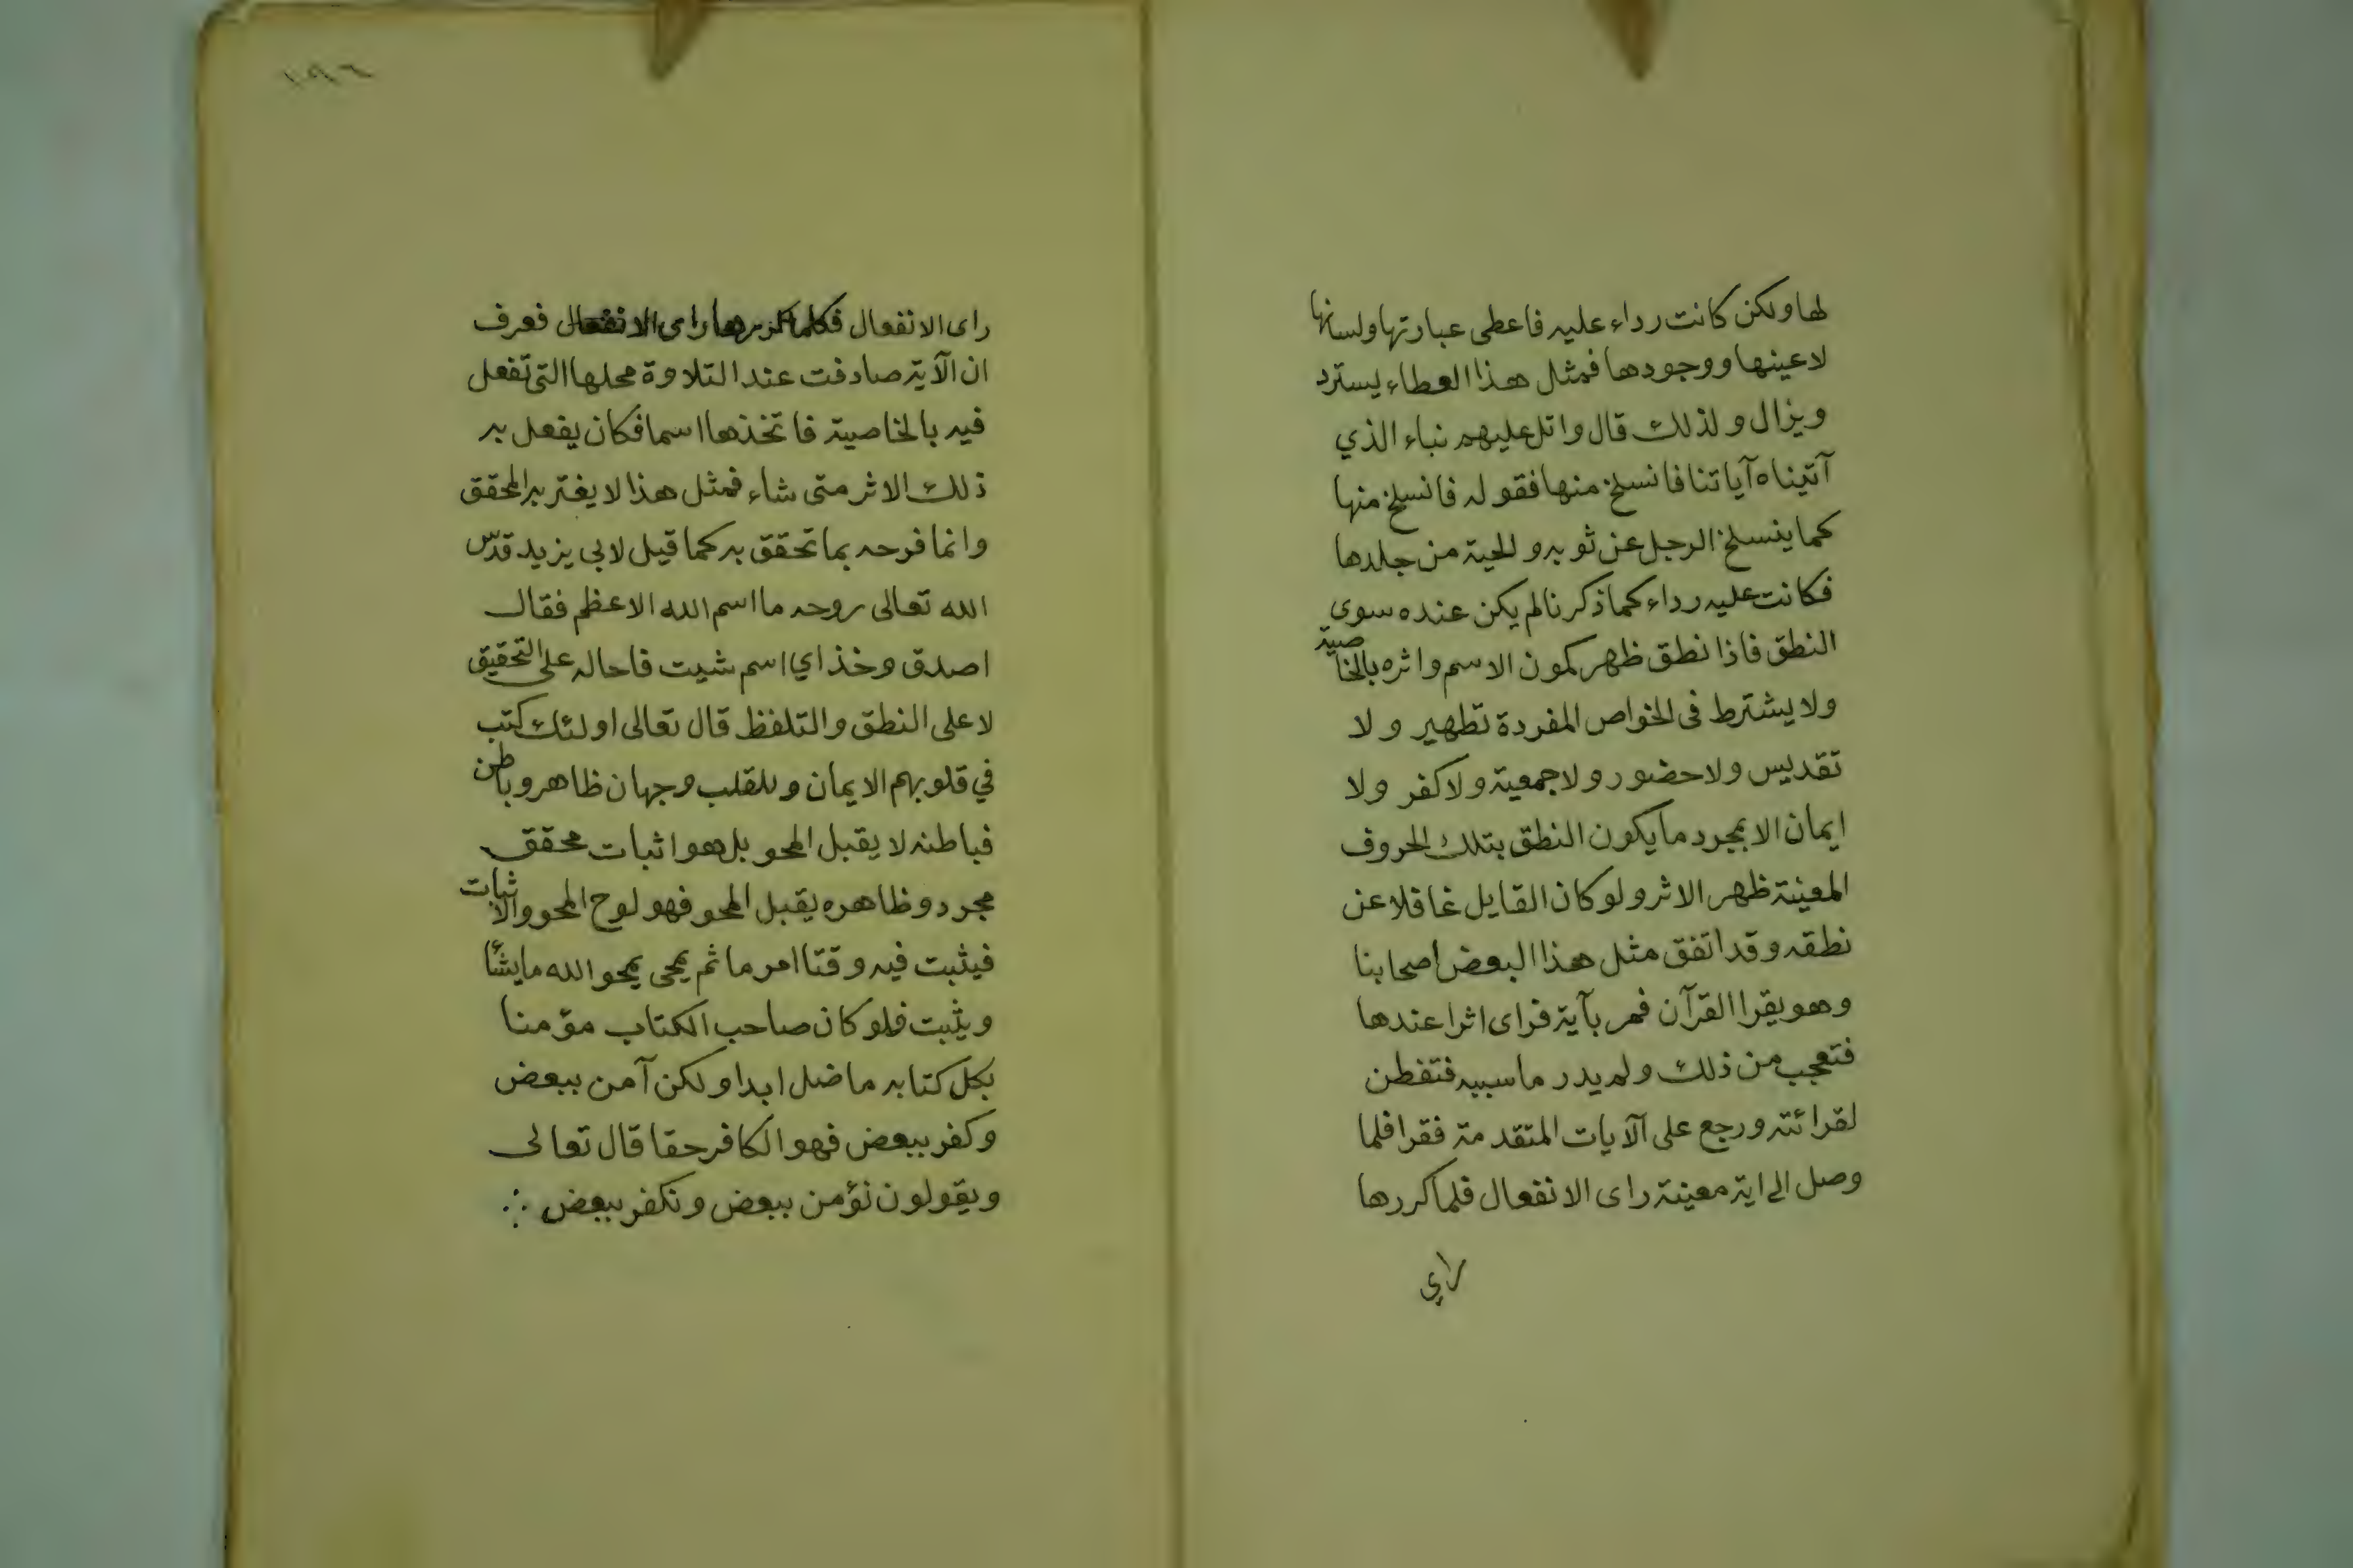 لها ولكن كانت رداء عليه فاعطى عبارتها ولسانها
لا عينها ووجودها فمثل هذا العطاء يسترد
ويزال ولذلك قال واتل عليهم نباء الذي
آتيناه آياتنا فانسلخ منها فقوله فانسلخ منها
كما ينسلخ الرجل عن ثوبه والحية من جلدها
فكانت عليه رداء كما ذكرنا لم يكن عنده سوى
النطق فاذا نطق ظهر كمون الاسم واثره بالخاصية
ولا يشترط فى الخواص المفردة تطهير ولا
تقديس ولا حضور ولا جمعية ولا كفر ولا
ايمان الا بمجرد ما يكون النطق بتلك الحروف
المعينة ظهر الاثر ولو كان القايل غافلا عن
نطقه وقد اتفق مثل هذا لبعض اصحابنا
وهو يقرا القرآن فمر بآية فراى اثرا عندها
فتعجب من ذلك ولم يدر ما سببه فتفطن
لقرائته ورجع على الآيات المتقدمة فقرا فلما
وصل الى اية معينة راى الانفعال فلما كررها
راي
١٩٦
راى الانفعال فكلما كررها راى الانفعال فعرف
ان الآية صادفت عند التلاوة محلها التى تفعل
فيه بالخاصية فاتخذها اسما فكان يفعل به
ذلك الاثر متى شاء فمثل هذا لا يغتر به المحقق
وانما فرحه بما تحقق به كما قيل لابى يزيد قدّس
الله تعالى روحه ما اسم الله الاعظم فقال
اصدق وخذ اي اسم شيت فاحاله على التحقيق
لا على النطق والتلفظ قال تعالى اولئك كتب
في قلوبهم الايمان وللقلب وجهان ظاهر وباطن
فباطنه لا يقبل المحو بل هو اثبات محقق
مجرد وظاهره يقبل المحو فهو لوح المحو والاثبات
فيثبت فيه وقتا امر ما ثم يمحى يمحو الله ما يشأ
ويثبت فلو كان صاحب الكتاب مؤمنا
بكل كتابه ما ضل ابدا ولكن آمن ببعض
وكفر ببعض فهو الكافر حقا قال تعالى
ويقولون نؤمن ببعض ونكفر ببعض ∴